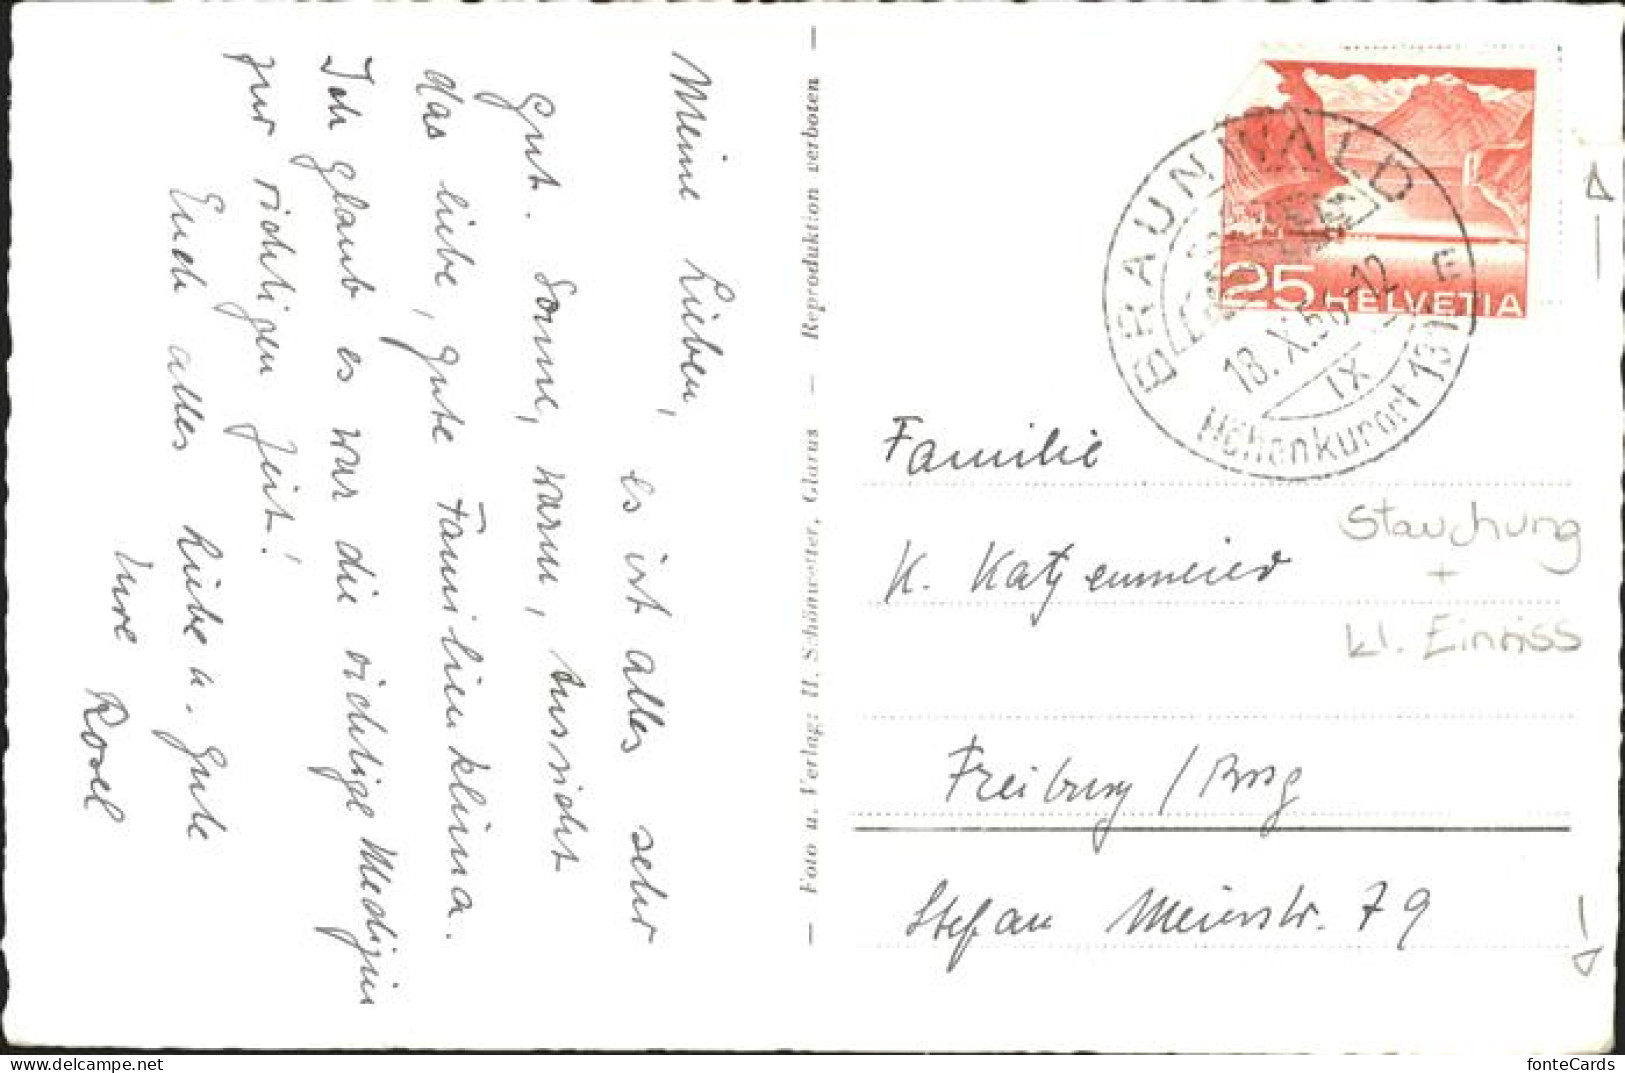 Meine Lieben,
es ist alles sehr
gut. Sonne, warm, Aussicht
das liebe, gute Familienklima.
Ich glaub es war die richtige Medizin
zur richtigen Zeit!
Euch alles Liebe u. Gute
Eure Rosel
— Foto u. Verlag: H. Schönwetter, Glarus — Reproduktion verboten —
BRAUNWALD
18. X. 12
IX
Höhenkurort
25 HELVETIA
Familie
K. Katzenmeier
Stauchung
+
kl. Einriss
Freiburg / Brsg
Stefan Meierstr. 79
delcampe.net
fonteCards